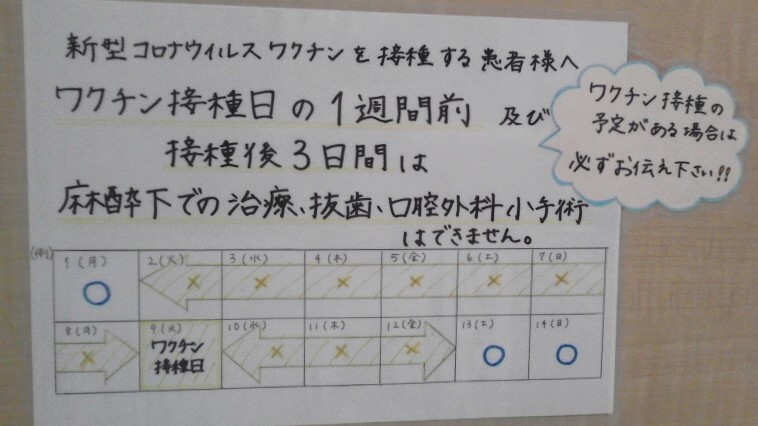 新型コロナウイルスワクチンを接種する患者様へ
ワクチン接種日の1週間前及び
接種後3日間は
麻酔下での治療、抜歯、口腔外科小手術
はできません。
ワクチン接種の
予定がある場合は
必ずお伝え下さい!!
(例)
1(月) 2(火) 3(水) 4(木) 5(金) 6(土) 7(日)
○ × × × × × ×
8(月) 9(火) 10(水) 11(木) 12(金) 13(土) 14(日)
× ワクチン × × × ○ ○
接種日